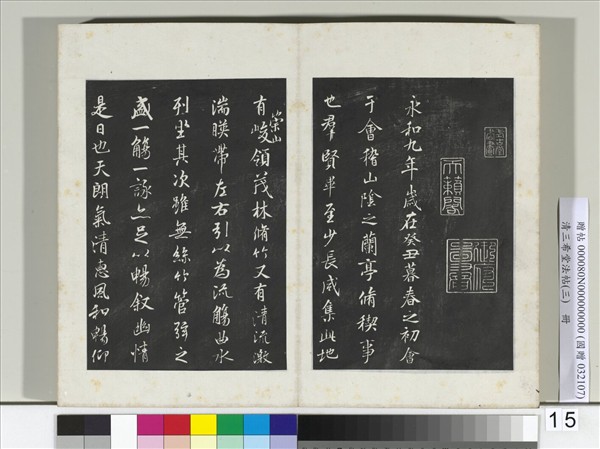 天籟閣
永和九年歲在癸丑暮春之初會
于會稽山陰之蘭亭脩稧事
也群賢畢至少長咸集此地
崇山
有峻領茂林脩竹又有清流激
湍暎帶左右引以為流觴曲水
列坐其次雖無絲竹管弦之
盛一觴一詠亦足以暢敘幽情
是日也天朗氣清惠風和暢仰
贈帖 000080N000000000 (國贈 032107)
清三希堂法帖(三) 冊
15